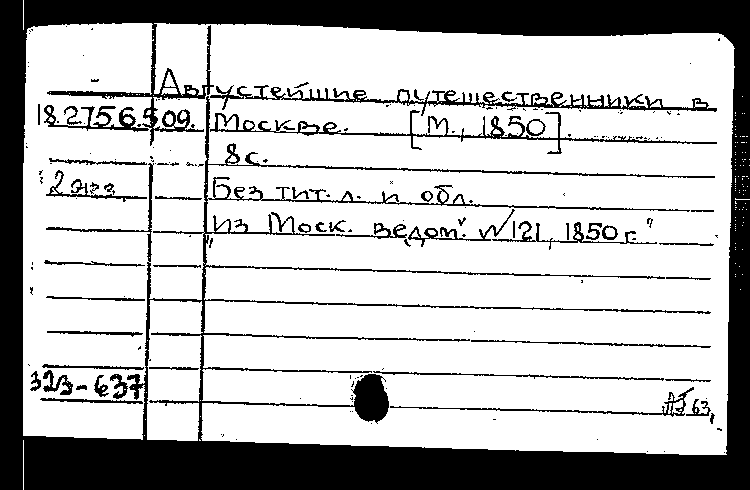 Августейшие путешественники в
18.275.6.509. Москве. [М., 1850].
8с.
2 экз. Без тит. л. и обл.
"Из Моск. ведом." №121, 1850 г."
323-637
63